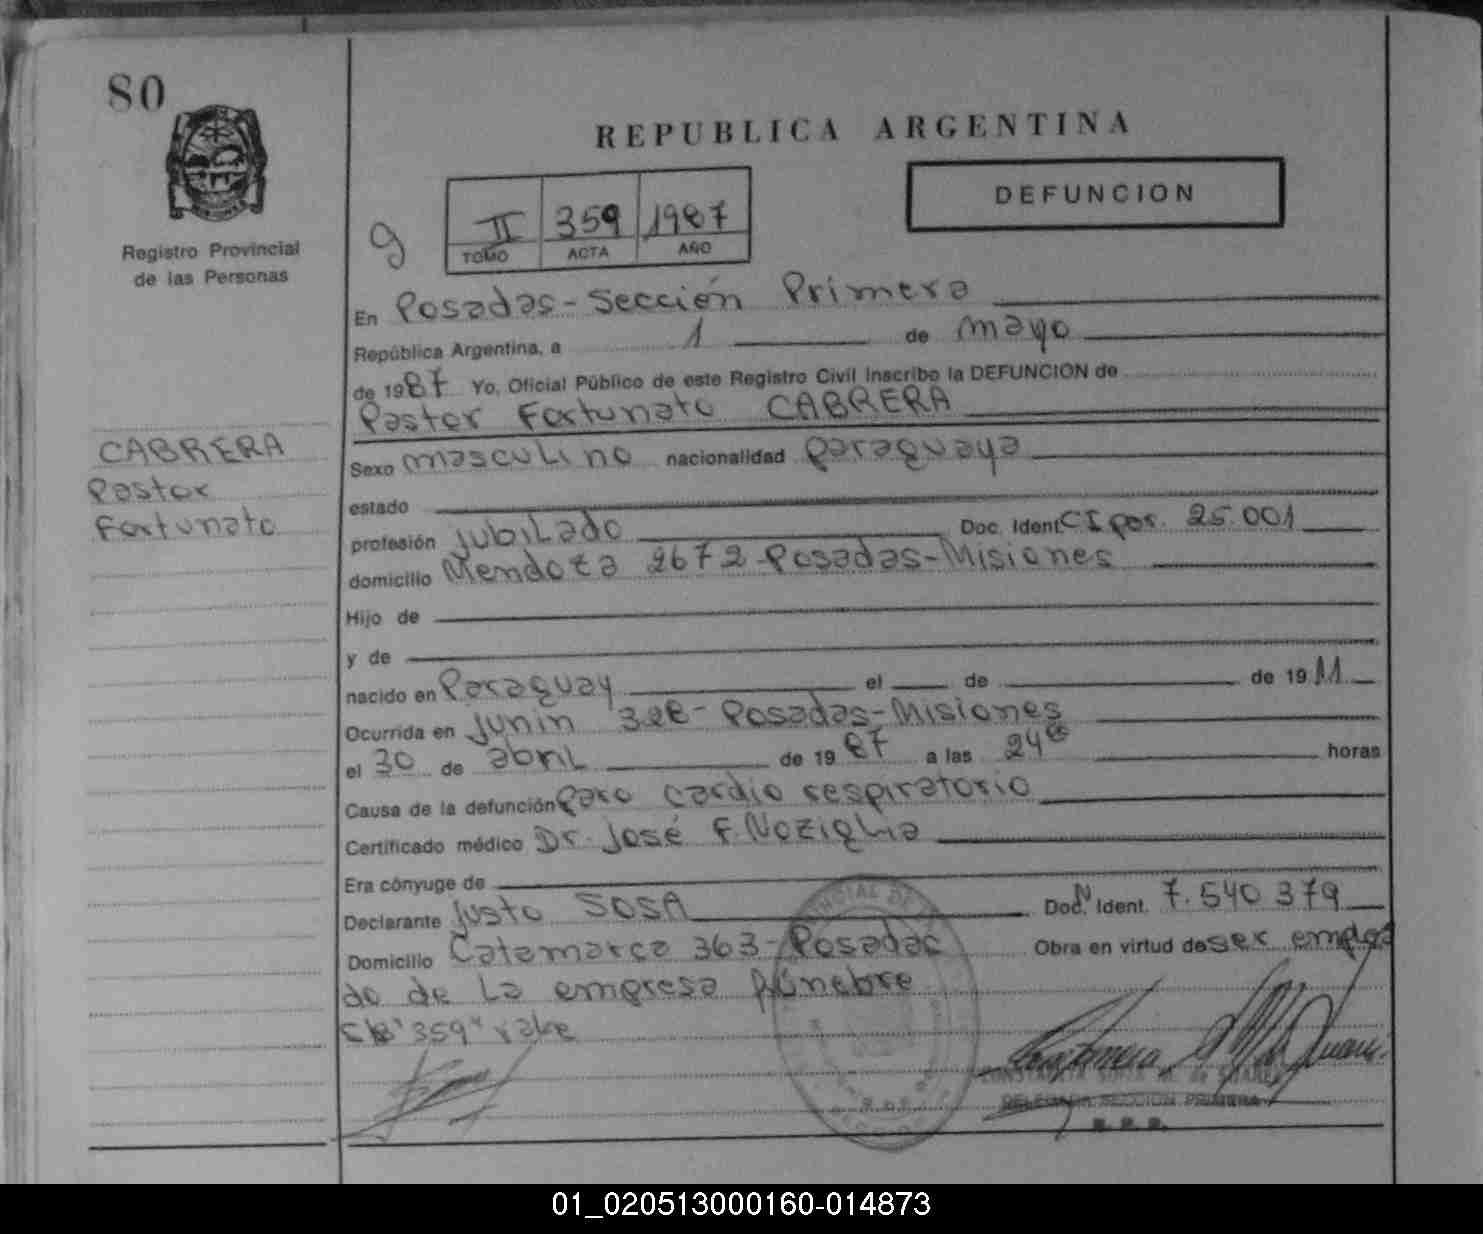 80
REPUBLICA ARGENTINA
DEFUNCION
Registro Provincial
de las Personas
g
II 359 1987
TOMO ACTA AÑO
En Posadas-Sección Primera
República Argentina, a 1 de mayo
de 1987 Yo, Oficial Público de este Registro Civil inscribo la DEFUNCION de
Pastor Fortunato CABRERA
CABRERA
Pastor
Fortunato
Sexo masculino nacionalidad paraguaya
estado
profesión jubilado Doc. Ident. CI por. 25.001
domicilio Mendoza 2672-Posadas-Misiones
Hijo de
y de
nacido en Paraguay el de de 1911
Ocurrida en Junin 328-Posadas-Misiones
el 30 de abril de 1987 a las 24 horas
Causa de la defunción paro cardio respiratorio
Certificado médico Dr. José F. Noziglia
Era cónyuge de
Declarante Justo SOSA Doc. N Ident. 7.540 379
Domicilio Catamarca 363-Posadas Obra en virtud de ser emplea
do de la empresa fúnebre
S/b "359" vale
DELEGADA SECCION PRIMERA
R. P. P.
01_020513000160-014873